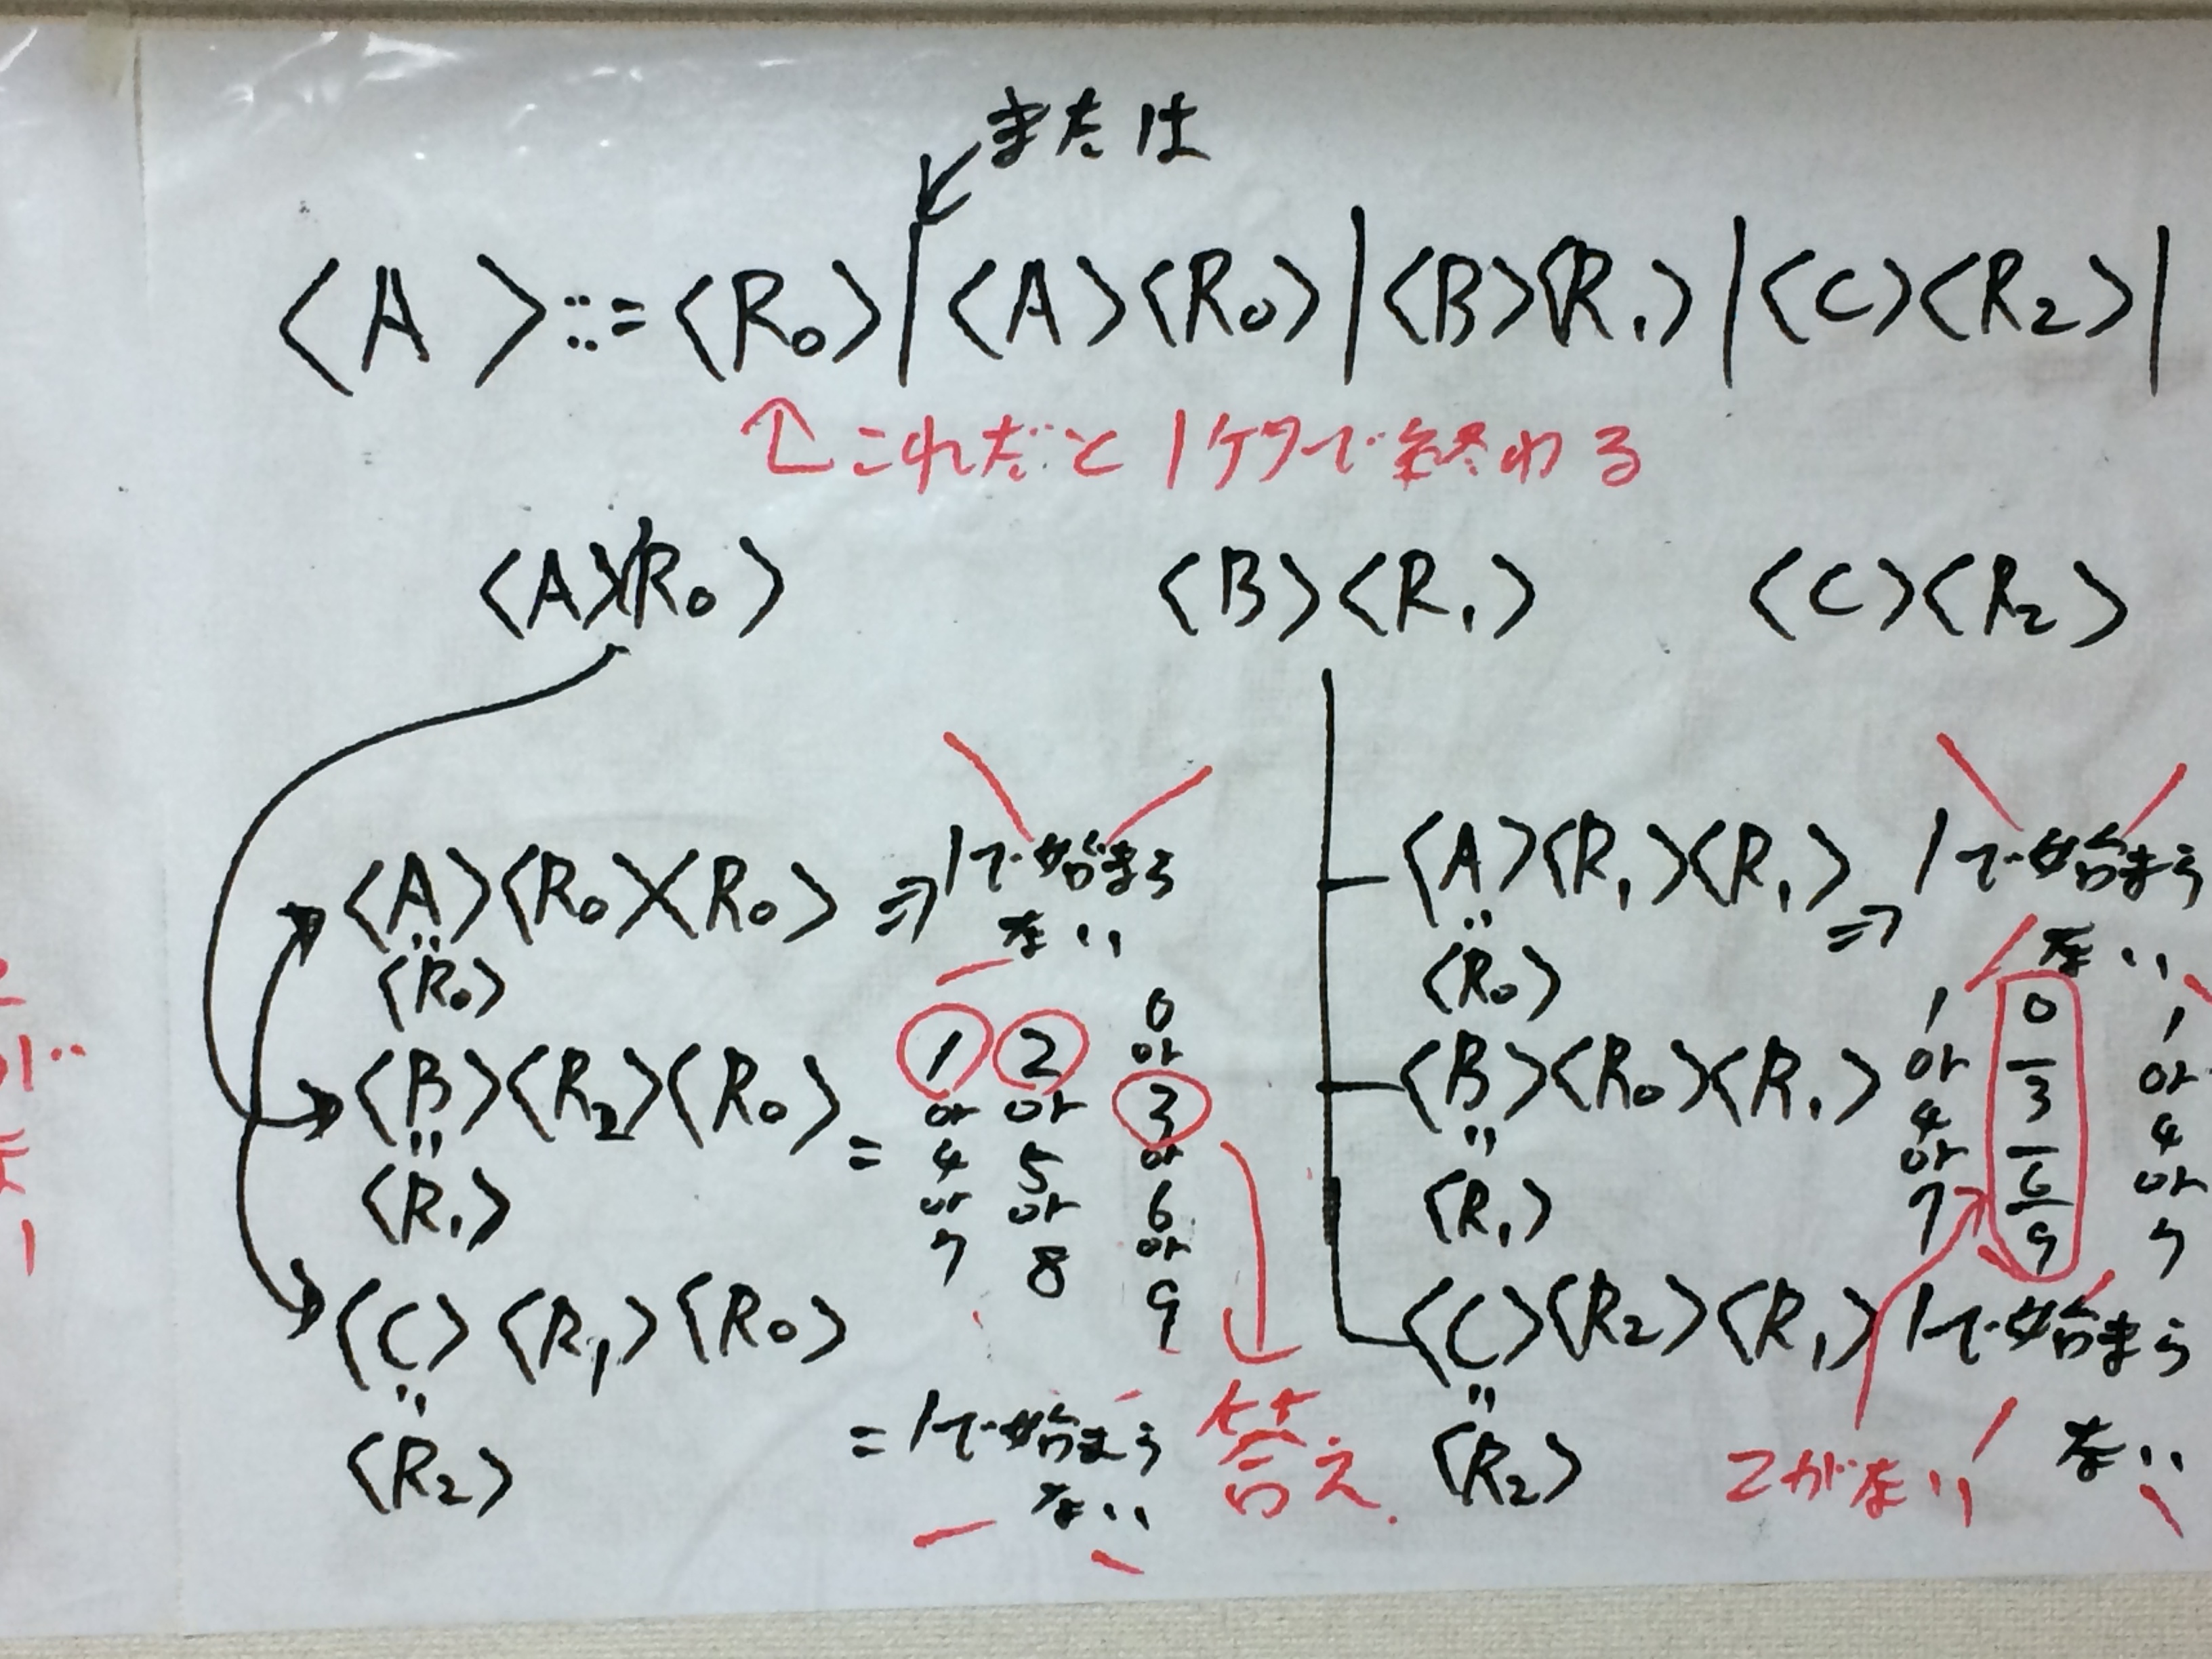 または
<A>::=<R₀>|<A><R₀>|<B><R₁>|<C><R₂>|
これだと1ケタで終わる
<A><R₀>
<B><R₁>
<C><R₂>
<A><R₀><R₀> ⇒ 1で始まら
ない
<R₀>
<B><R₂><R₀> =
<R₁>
1 or 4 or 7
2 or 5 or 8
0 or 3 or 6 or 9
答え
<C><R₁><R₀>
= 1で始まら
ない
<R₂>
<A><R₁><R₁> ⇒ 1で始まら
ない
<R₀>
<B><R₀><R₁>
<R₁>
1 or 4 or 7
0 3 6 9
1 or 4 or 7
<C><R₂><R₁> 1で始まら
ない
<R₂>
2がない